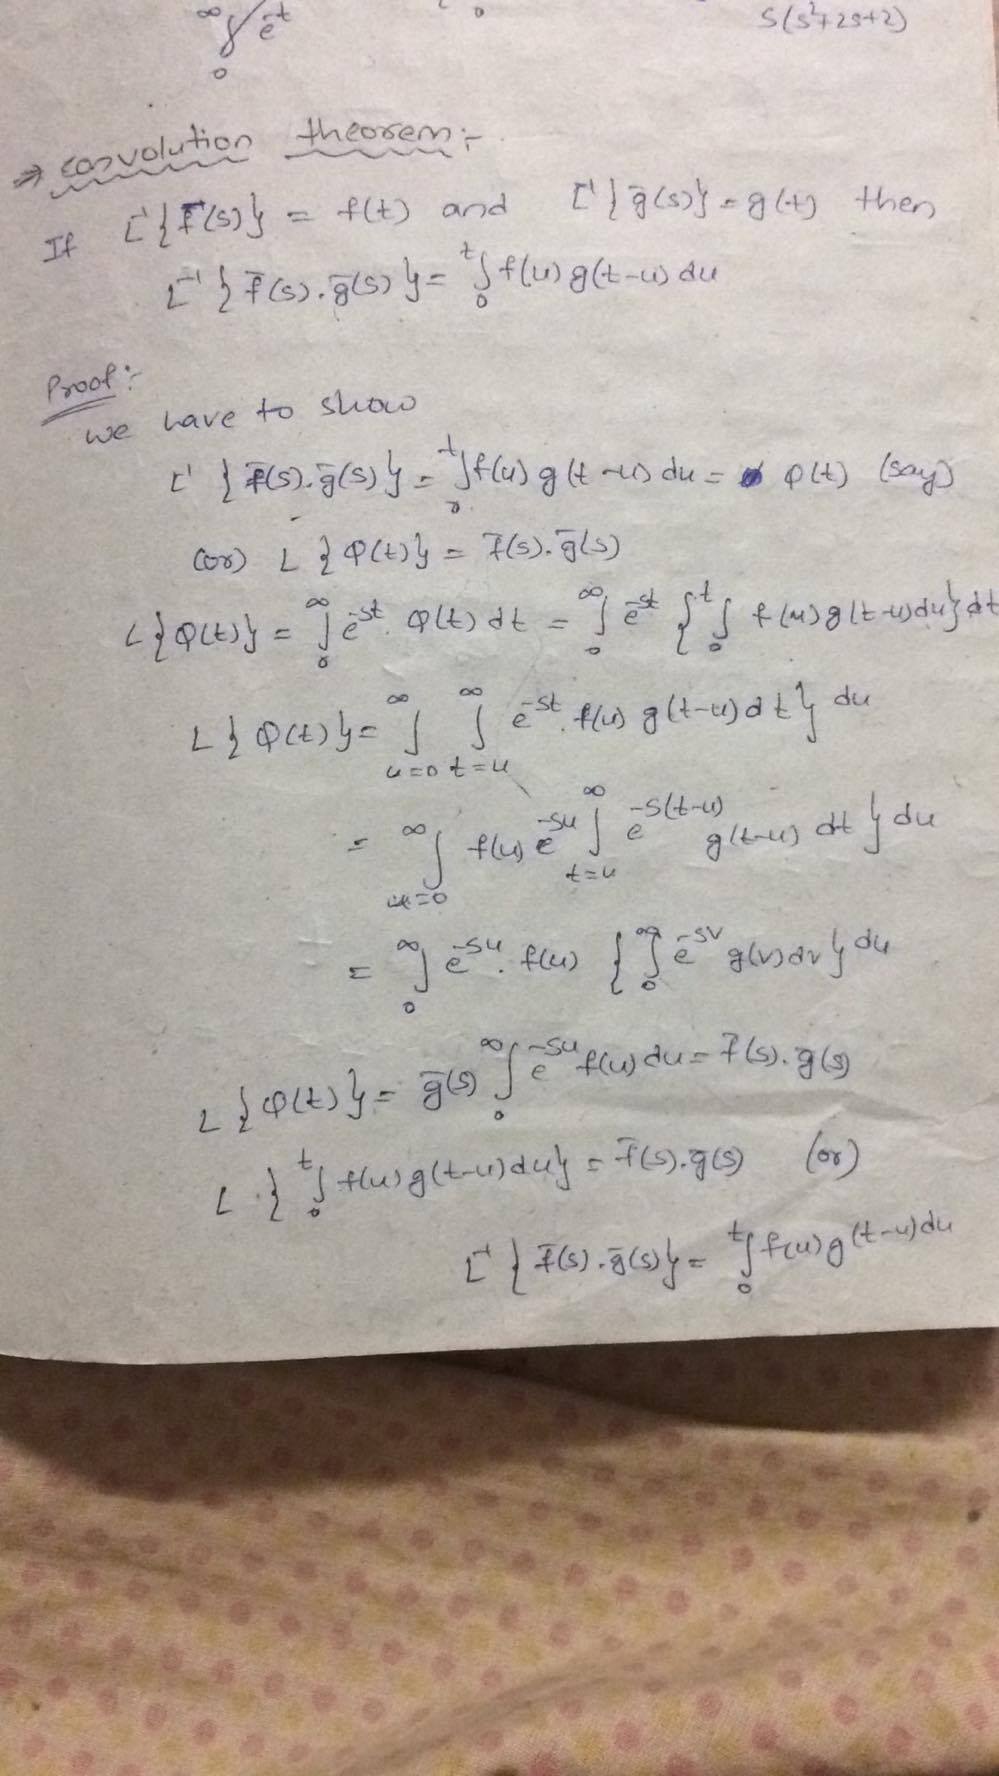 ∞∫₀ e^-t
0
S(s²+2s+2)
⇒ convolution theorem:-
If L⁻¹{f̄(s)} = f(t) and L⁻¹{ḡ(s)} = g(t) then
L⁻¹{f̄(s).ḡ(s)} = ᵗ∫₀ f(u) g(t-u) du
Proof:-
we have to show
L⁻¹{f̄(s).ḡ(s)} = ᵗ∫₀ f(u) g(t-u) du = φ(t) (say)
(or) L{φ(t)} = f̄(s).ḡ(s)
L{φ(t)} = ∞∫₀ e^-st. φ(t) dt = ∞∫₀ e^-st {ᵗ∫₀ f(u) g(t-u) du} dt
L{φ(t)} = ∞∫u=0 ∞∫t=u e^-st. f(u) g(t-u) dt} du
= ∞∫u=0 f(u) e^-su ∞∫t=u e^-s(t-u) g(t-u) dt} du
= ∞∫₀ e^-su. f(u) {∞∫₀ e^-sv g(v) dv} du
L{φ(t)} = ḡ(s) ∞∫₀ e^-su f(u) du = f̄(s).ḡ(s)
L.{ᵗ∫₀ f(u) g(t-u) du} = f̄(s).ḡ(s) (or)
L⁻¹{f̄(s).ḡ(s)} = ᵗ∫₀ f(u) g(t-u) du